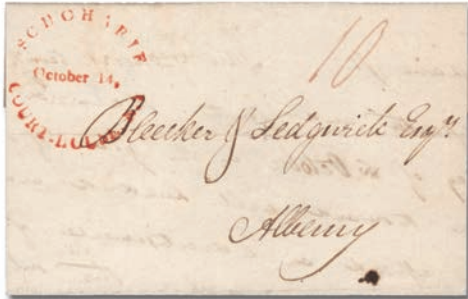 SCHOHARIE
October 14,
COURT-HOUSE
10
Bleecker & Sedgwick Esqrs
Albany